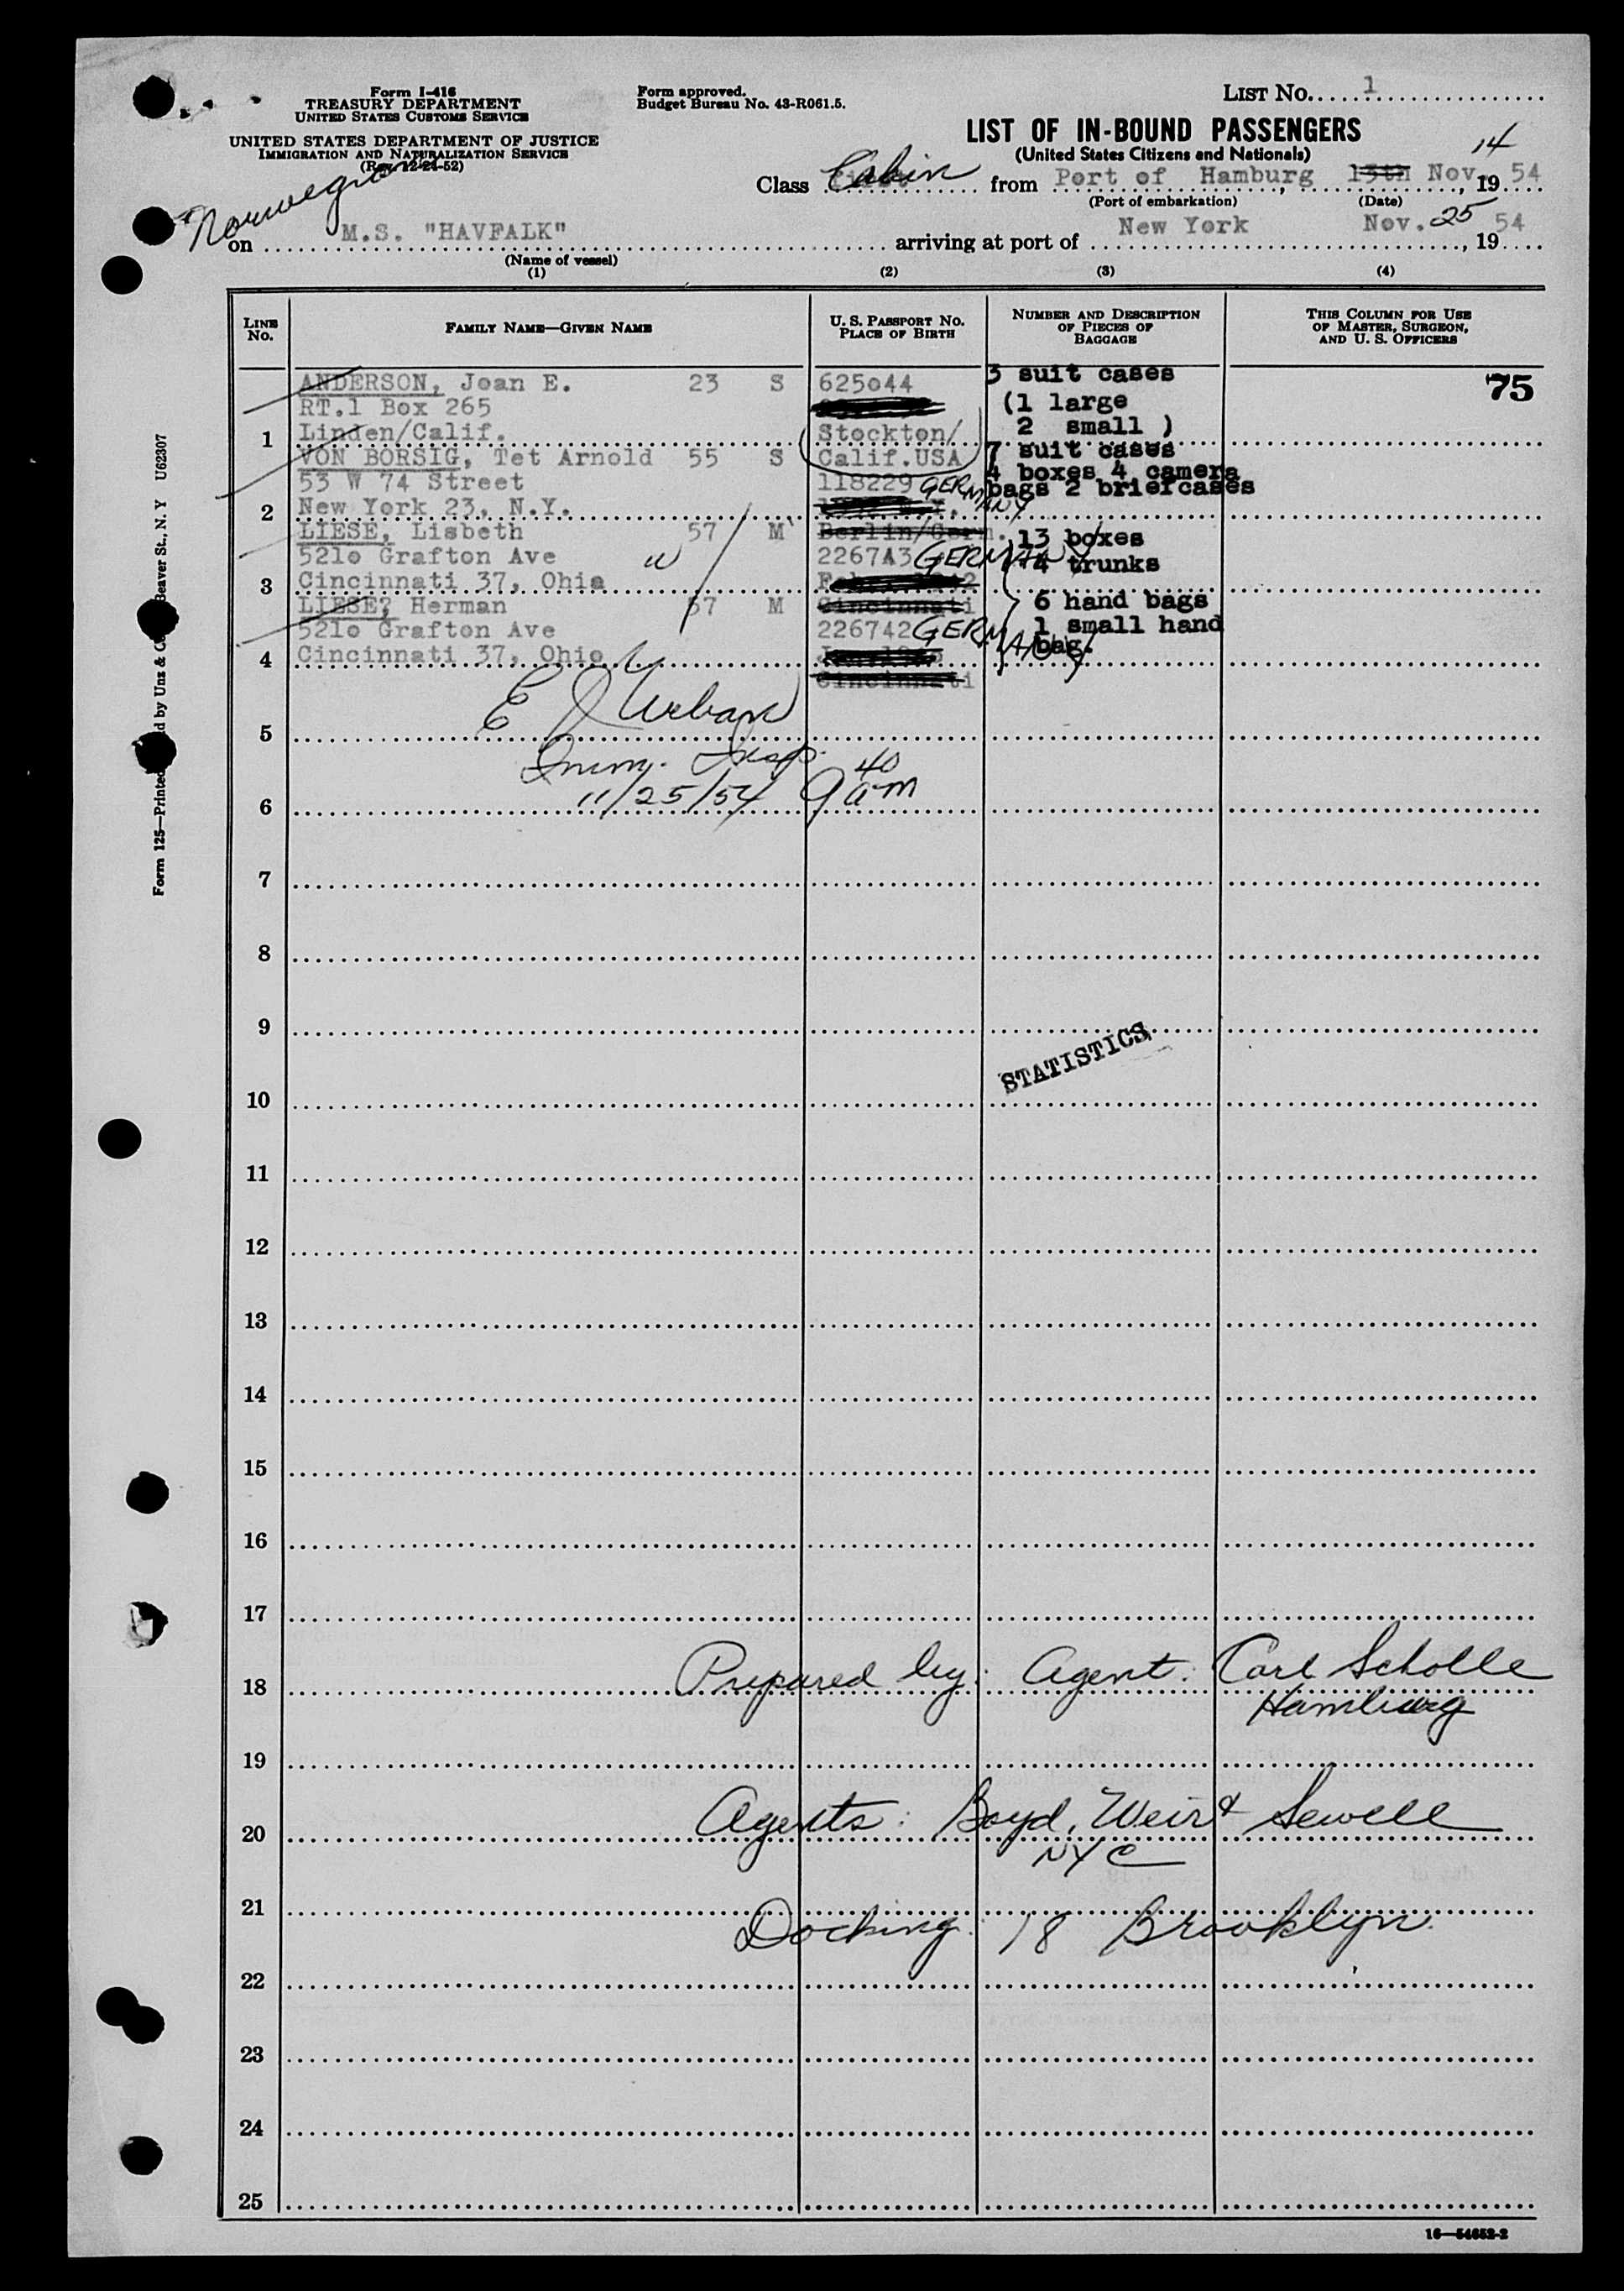 Form I-416
TREASURY DEPARTMENT
UNITED STATES CUSTOMS SERVICE
UNITED STATES DEPARTMENT OF JUSTICE
IMMIGRATION AND NATURALIZATION SERVICE
(Rev. 12-24-52)
Form approved.
Budget Bureau No. 43-R061.5.
LIST No. 1
LIST OF IN-BOUND PASSENGERS
(United States Citizens and Nationals)
Class Cabin from Port of Hamburg, 13th 14 Nov., 1954
(Port of embarkation) (Date)
Norwegian
on M.S. "HAVFALK" arriving at port of New York Nov. 25, 1954
(Name of vessel)
(1) (2) (3) (4)
LINE No.
FAMILY NAME—GIVEN NAME
U. S. PASSPORT No.
PLACE OF BIRTH
NUMBER AND DESCRIPTION
OF PIECES OF
BAGGAGE
THIS COLUMN FOR USE
OF MASTER, SURGEON,
AND U. S. OFFICERS
ANDERSON, Joan E. 23 S 625o44 3 suit cases 75
RT.1 Box 265 (1 large
1 Linden/Calif. Stockton/ 2 small )
VON BORSIG, Tet Arnold 55 S Calif.USA 7 suit cases
53 W 74 Street 118229 GERMANY 4 boxes 4 camera
bags 2 briefcases
2 New York 23, N.Y.
LIESE, Lisbeth 57 M Berlin/Germ. 13 boxes
521o Grafton Ave 2267A3 GERMANY 4 trunks
3 Cincinnati 37, Ohia
LIESE? Herman 57 M Cincinnati 6 hand bags
521o Grafton Ave 226742 GERMANY 1 small hand
bag.
4 Cincinnati 37, Ohio
Cincinnati
E J Urban
5
Imm. Insp.
11/25/54 9 40 am
6
7
8
9
STATISTICS
10
11
12
13
14
15
16
17
18 Prepared by: Agent: Carl Scholle
Hamburg
19
20 Agents: Boyd, Weir & Sewell
NYC
21
Docking: 18 Brooklyn
22
23
24
25
16—54652-2
Form 125—Printed
d by Unz & Co
Beaver St., N. Y U62307